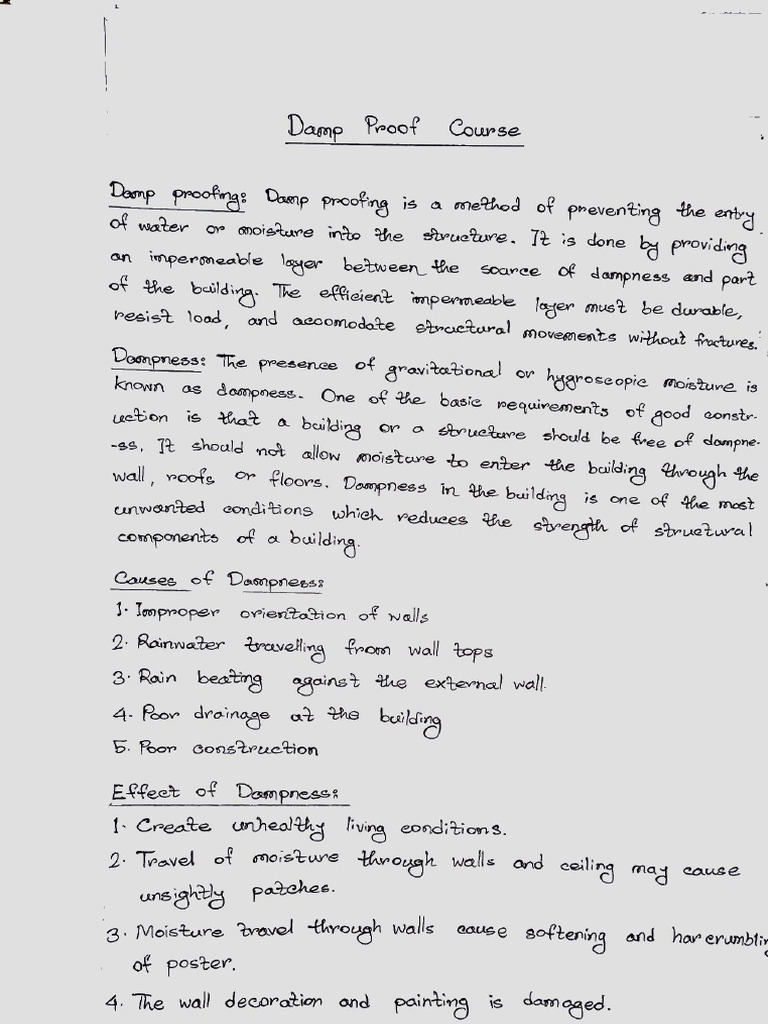 Damp Proof Course
Damp proofing: Damp proofing is a method of preventing the entry
of water or moisture into the structure. It is done by providing
an impermeable layer between the source of dampness and part
of the building. The efficient impermeable layer must be durable,
resist load, and accomodate structural movements without fractures.
Dampness: The presence of gravitational or hygroscopic moisture is
known as dampness. One of the basic requirements of good constr-
uction is that a building or a structure should be free of dampne-
-ss. It should not allow moisture to enter the building through the
wall, roofs or floors. Dampness in the building is one of the most
unwanted conditions which reduces the strength of structural
components of a building.
Causes of Dampness:
1. Improper orientation of walls
2. Rainwater travelling from wall tops
3. Rain beating against the external wall.
4. Poor drainage at the building
5. Poor construction
Effect of Dampness:
1. Create unhealthy living conditions.
2. Travel of moisture through walls and ceiling may cause
unsightly patches.
3. Moisture travel through walls cause softening and
of poster.
4. The wall decoration and painting is damaged.